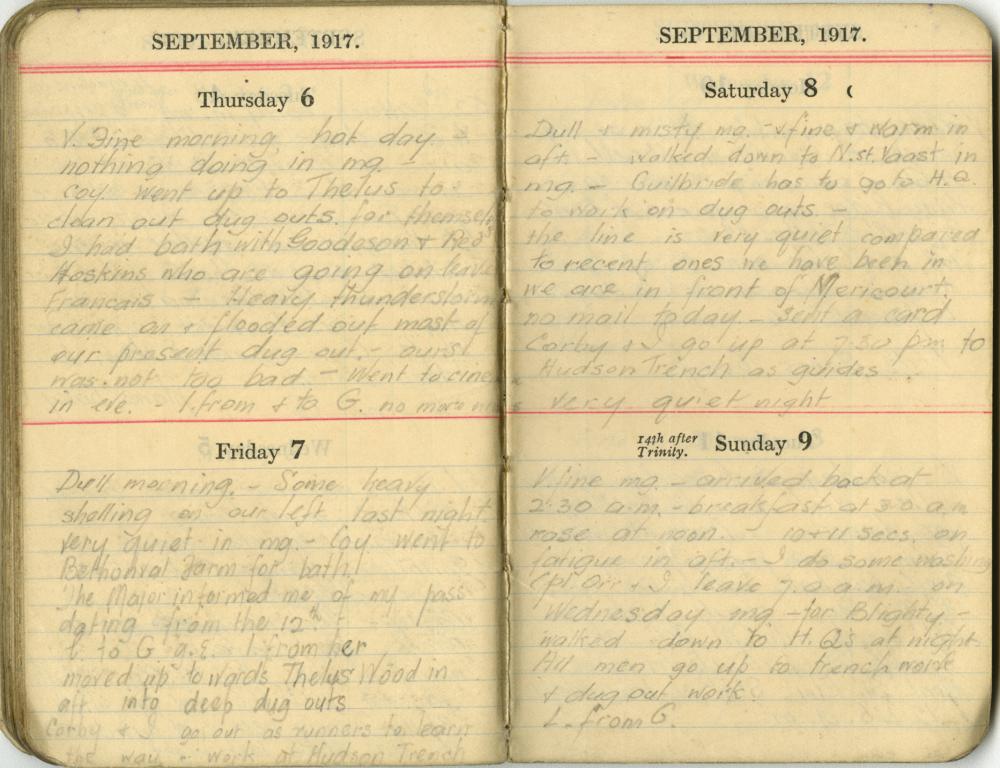 SEPTEMBER, 1917.
Thursday 6
V. Fine morning, hot day
nothing doing in mg. —
Coy. went up to Thelus to
clean out dug outs. for themsel
I had bath with Goodeson &
Hoskins who are going on leave
Francais — Heavy thunderstorm
came on & flooded out most of
our present dug out. — ours
was not too bad. — Went to cinema
in eve. — 1. from & to G. no more
Friday 7
Dull morning. — Some heavy
shelling on our left last night.
very quiet in mg. — Coy went to
Berthonval Farm for bath.
The Major informed me of my pass
dating from the 12th
L. to G 1 from her
moved up towards Thelus Wood in
aft into deep dug outs
Corby & I go out as runners to learn
the way & work at Hudson Trench
SEPTEMBER, 1917.
Saturday 8
Dull & misty mg. — v fine & warm in
aft. — walked down to N. st. Vaast in
mg. — Guilbride has to go to H.Q.
to work on dug outs. —
the line is very quiet compared
to recent ones we have been in
we are in front of Mericourt.
no mail today — sent a card
Corby & I go up at 7.30 pm to
Hudson Trench as guides
very quiet night
14th after
Trinity. Sunday 9
V. fine mg. — arrived back at
2.30 a.m. — breakfast at 3.0 a.m
rose at noon. — 10 & 11 secs. on
fatigue in aft. — I do some washing
Cpl Orr & I leave 7.0 a.m. on
Wednesday mg — for Blighty —
walked down to H.Qs at night.
All men go up to trench work
& dug out work.
L. from G.